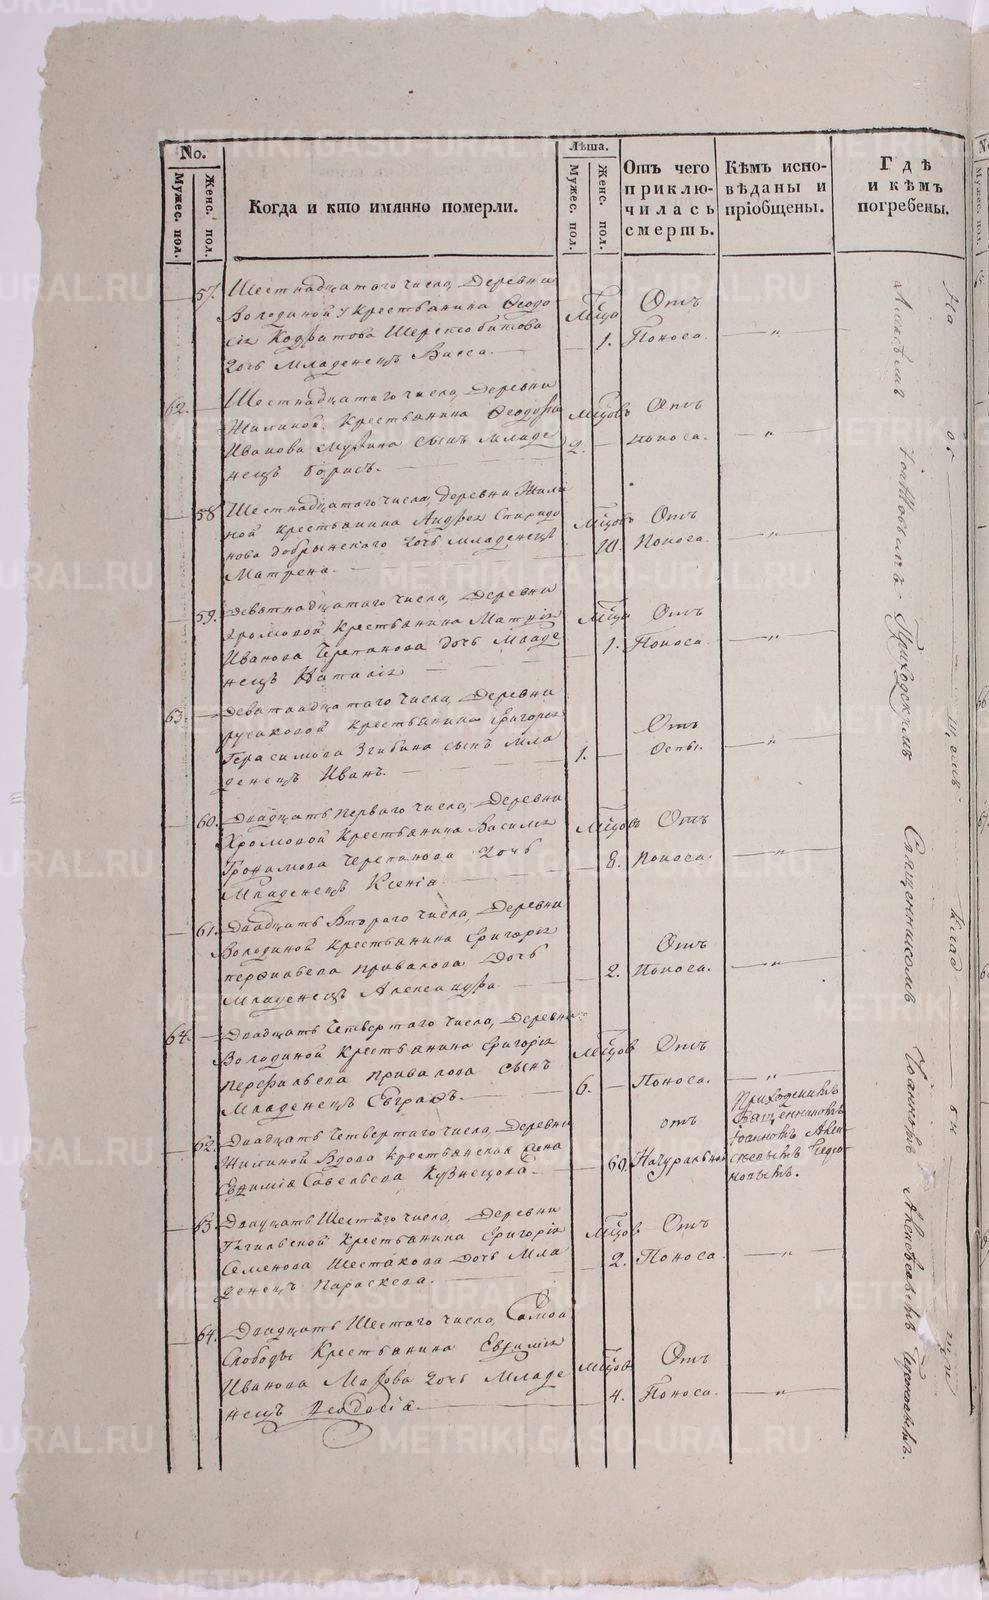 No.
Мужес. пол.
Женс. пол.
Когда и кто имянно померли.
Лѣта.
Мужес. пол.
Женс. пол.
Отъ чего
приклю-
чилась
смерть.
Кѣмъ испо-
вѣданы и
пріобщены.
Гдѣ
и кѣмъ
погребены.
57. Шестнадцатаго числа, Деревни
Володиной Крестьянина Ѳеодо
сія
Дочь Младенецъ Васса.
Мѣсца
1.
Отъ
Поноса.
62. Шестнадцатаго числа, Деревни
Жилиной, Крестьянина
Иванова сынъ младе
нецъ Борисъ.
Мѣсцовъ
2.
Отъ
поноса.
58 Шестнадцатаго числа, деревни Жили
ной крестьянина Андрея Спиридо
нова Добрынскаго дочь младенецъ
Матрена.
Мѣсцовъ
10.
Отъ
Поноса.
59. Девятнадцатаго числа, Деревни
Хромовой крестьянина
Иванова Черепанова дочь Младе
нецъ Наталія
Мѣсца
1.
Отъ
Поноса.
63. Девятнадцатаго числа, Деревни
русаковой Крестьянина Григорія
Герасимова Згибина сынъ мла
денецъ Иванъ.
1.
Отъ
Оспы.
60. Двадцать перваго числа, Деревни
Хромовой Крестьянина Василія
Трофимова Черепанова дочь
Младенецъ Ксенія
Мѣсцовъ
8.
Отъ
Поноса.
61. Двадцать Втораго числа, Деревни
Володиной Крестьянина Григорія
перфильева Привалова Дочь
Младенецъ Александра
2.
Отъ
Поноса.
64. Двадцать Четвертаго числа, Деревни
Володиной Крестьянина Григорія
перфильева привалова сынъ
Младенецъ Евграфъ.
Мѣсцовъ
6.
Отъ
Поноса.
62. Двадцать Четвертаго числа, Деревни
Жилиной Вдова крестьянская Жена
Евфимія Савельева Кузнецова
60.
отъ
Натуральной
Приходскимъ
Священникомъ
Іоанномъ
63 Двадцать Шестаго числа, Деревни
Крестьянина Григорія
Семенова Шестакова дочь Мла
денецъ Параскева.
Мѣсцов
2.
Отъ
Поноса.
64. Двадцать Шестаго числа, Самой
Слободы Крестьянина Евфимія
Иванова дочь Младе
нецъ Ѳеодосія.
Мѣсцовъ
4.
Отъ
Поноса.
На об щемъ Клад би щи
Приходскимъ Священникомъ Іоанномъ
METRIKI.GASO-URAL.RU